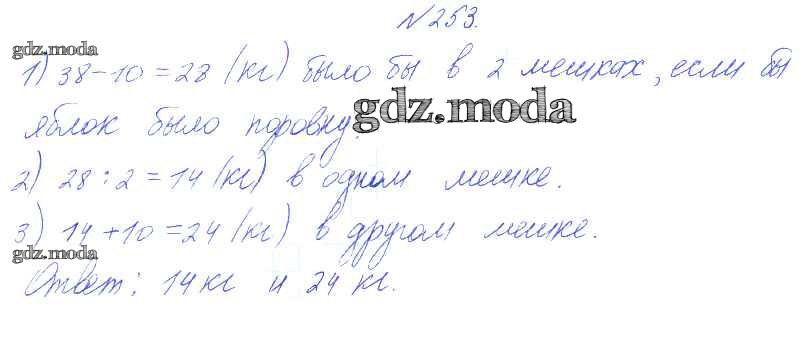 N 253.
gdz.moda
1) 38-10=28 (кг) было бы в 2 мешках, если бы
яблок было поровну.
gdz.moda
2) 28:2=14 (кг) в одном мешке.
3) 14+10=24 (кг) в другом мешке.
gdz.moda
Ответ: 14 кг и 24 кг.